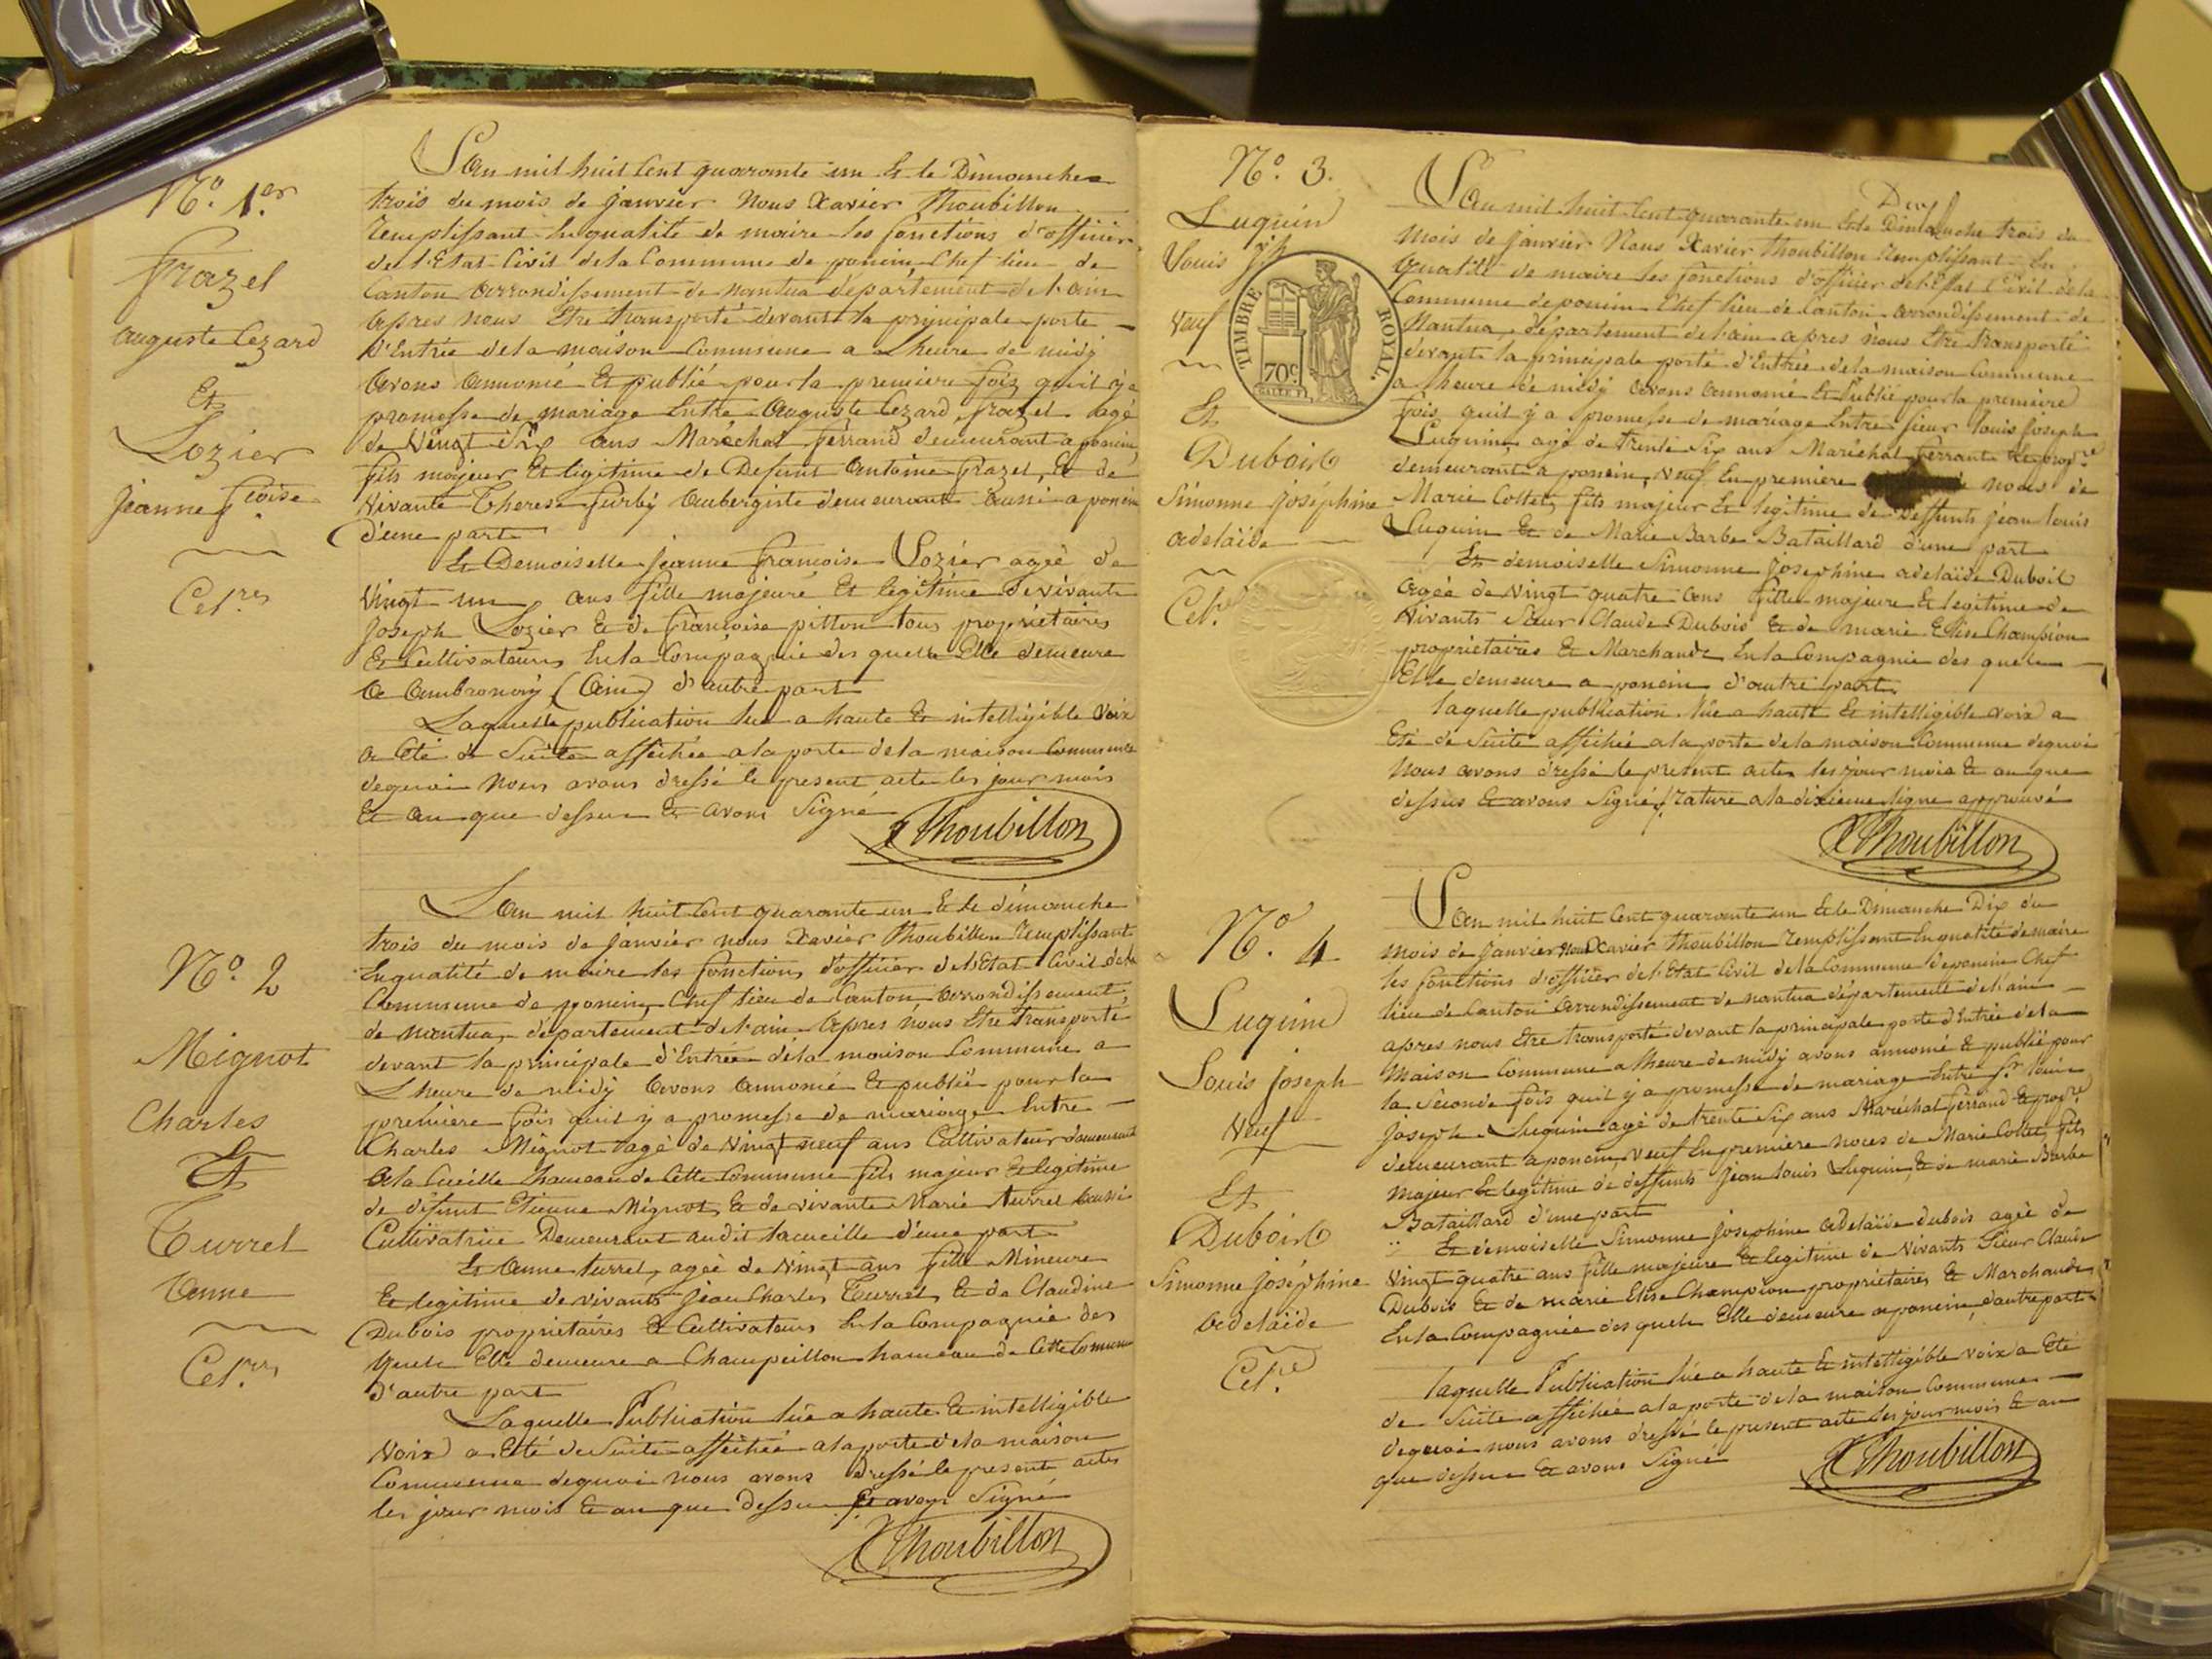 N.º 1.er
frazel
auguste Cezard
Et
Lozier
jeanne f.çoise
Cel.res
L'an mil huit Cent quarante un Et le Dimanche
trois du mois de janvier Nous Xavier Thoubillon
Remplissant En qualité de maire les fonctions d'officier
de l'Etat Civil de la Commune de poncin Chef lieu de
Canton Arrondissement de nantua département de l'ain
Apres nous Etre transporté devant la principale porte
d'Entrée de la maison Commune a l'heure de midÿ
Avons Annoncé Et publié pour la premiere fois qu'il ÿ a
promesse de mariage Entre Auguste Cezard frazel agé
de Vingt Six ans Maréchal ferrand demeurant a poncin,
fils majeur Et legitime de Defunt Antoine frazel, Et de
Vivante Therese furbÿ Aubergiste demeurant aussi a poncin
d'une part
Et Demoiselle jeanne francoise Lozier agéé de
Vingt un ans fille majeure Et legitime de vivants
joseph Lozier Et de françoise pitton tous propriétaires
Et Cultivateurs En la Compagnie des quels Elle demeure
a Ambronaÿ (Ain) d'autre part
Laquelle publication lue a haute Et intelligible Voix
a Eté de Suite affichée a la porte de la maison Commune
de quoi Nous avons dressé le present acte les jour mois
Et an que dessus Et avons Signé
X Thoubillon
N.º 2
Mignot
Charles
Et
Turrel
Anne
Cel.res
L'an mil huit Cent quarante un Et le dimanche
trois du mois de janvier nous Xavier Thoubillon Remplissant
En qualité de maire les fonctions d'officier de l'Etat Civil de la
Commune de poncin, Chef lieu de Canton, Arrondissement
de nantua, département de l'ain Apres nous Etre transporté
devant la principale d'Entrée de la maison Commune a
L'heure de midÿ Avons Annoncé Et publié pour la
premiere fois qu'il ÿ a promesse de mariage Entre
Charles Mignot agé de Vingt neuf ans Cultivateur demeurant
a la Cueille hameau de Cette Commune fils majeur Et legitime
de défunt Etienne Mignot, Et de vivante Marie turrel aussi
Cultivatrice Demeurant audit lacueille d'une part
Et Anne turrel, agéé de Vingt ans fille Mineure
Et legitime de vivants jean Charles Turrel, Et de Claudine
Dubois propriétaires Et Cultivateurs En la Compagnie des
quels Elle demeure a Champeillon hameau de Cette Commune
d'autre part
Laquelle Publication lüe a haute Et intelligible
Voix a Eté de Suite affichée a la porte de la maison
Commune de quoi nous avons dressé le present acte
les jour mois Et an que dessus Et avons Signé
X Thoubillon
N.º 3.
Luguin
Louis j.ph
Veuf
Et
Dubois
Simonne joséphine
adelaïde
Cel.
TIMBRE ROYAL.
70 c.
Deux
L'an mil huit Cent quarante un Et le Dimanche trois du
mois de janvier Nous Xavier Thoubillon Remplissant En
qualité de maire les fonctions d'officier de l'Etat Civil de la
Commune de poncin Chef lieu de Canton arrondissement de
Nantua, département de l'ain apres nous Etre transporté
devant la principale porte d'Entrée de la maison Commune
a l'heure de midÿ avons annoncé Et Publié pour la premiere
fois qu'il ÿ a promesse de mariage Entre sieur louis joseph
Luguin, agé de trente Six ans Maréchal ferrant Et prop.re
demeurant a poncin, Veuf En premiere noces de
Marie Cottet, fils majeur Et legitime de Deffunts jean louis
Luguin Et de Marie Barbe Bataillard d'une part
Et demoiselle Simonne josephine adelaïde Dubois
agéé de Vingt quatre ans fille majeure Et legitime de
Vivants Sieur Claude Dubois Et de marie Elise Champion
propriétaires Et Marchands En la Compagnie des quels
Elle demeure a poncin d'autre part
laquelle publication lüe a haute Et intelligible voix a
Eté de Suite affichée a la porte de la maison Commune de quoi
Nous avons dressé le present acte les jour mois Et an que
dessus Et avons Signé, rature a la dixieme ligne approuvé
X Thoubillon
N.º 4
Luguin
Louis joseph
Veuf
Et
Dubois
Simonne joséphine
adelaïde
Cel.
L'an mil huit Cent quarante un Et le Dimanche Dix du
mois de janvier nous Xavier Thoubillon Remplissant En qualité de maire
les fonctions d'officier de l'Etat Civil de la Commune de poncin Chef
lieu de Canton Arrondissement de nantua département de l'ain
apres nous Etre transporté devant la principale porte d'Entrée de la
maison Commune a l'heure de midÿ avons annoncé Et publié pour
la séconde fois qu'il ÿ a promesse de mariage Entre s.r louis
joseph Luguin agé de trente Six ans Maréchal ferrand Et prop.re
demeurant a poncin, Veuf En premiere noces de Marie Cottet, fils
majeur Et legitime de deffunts jean louis Luguin, Et de marie Barbe
Bataillard d'une part
Et demoiselle Simonne josephine adelaïde dubois agéé de
Vingt quatre ans fille majeure Et legitime de Vivants Sieur Claude
Dubois Et de marie Elise Champion propriétaires Et Marchands
En la Compagnie des quels Elle demeure a poncin, d'autre part
laquelle Publication lüe a haute Et intelligible voix a Eté
de Suite affichée a la porte de la maison Commune
de quoi nous avons dressé le present acte les jour mois Et an
que dessus Et avons Signé
X Thoubillon